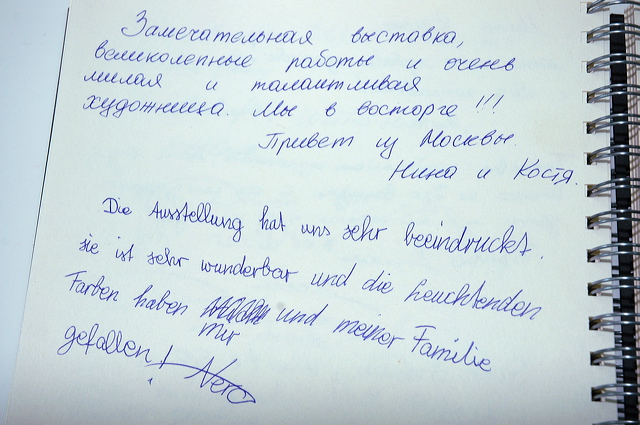 Замечательная выставка,
великолепные работы и очень
милая и талантливая
художница. Мы в восторге !!!
Привет из Москвы.
Нина и Костя.
Die Ausstellung hat uns sehr beeindruckt.
sie ist sehr wunderbar und die Leuchtenden
Farben haben und meiner Familie
mir
gefallen!